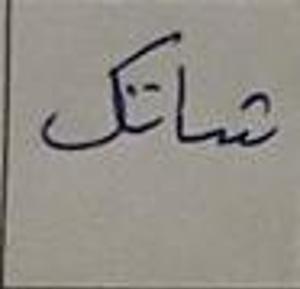 شاتک